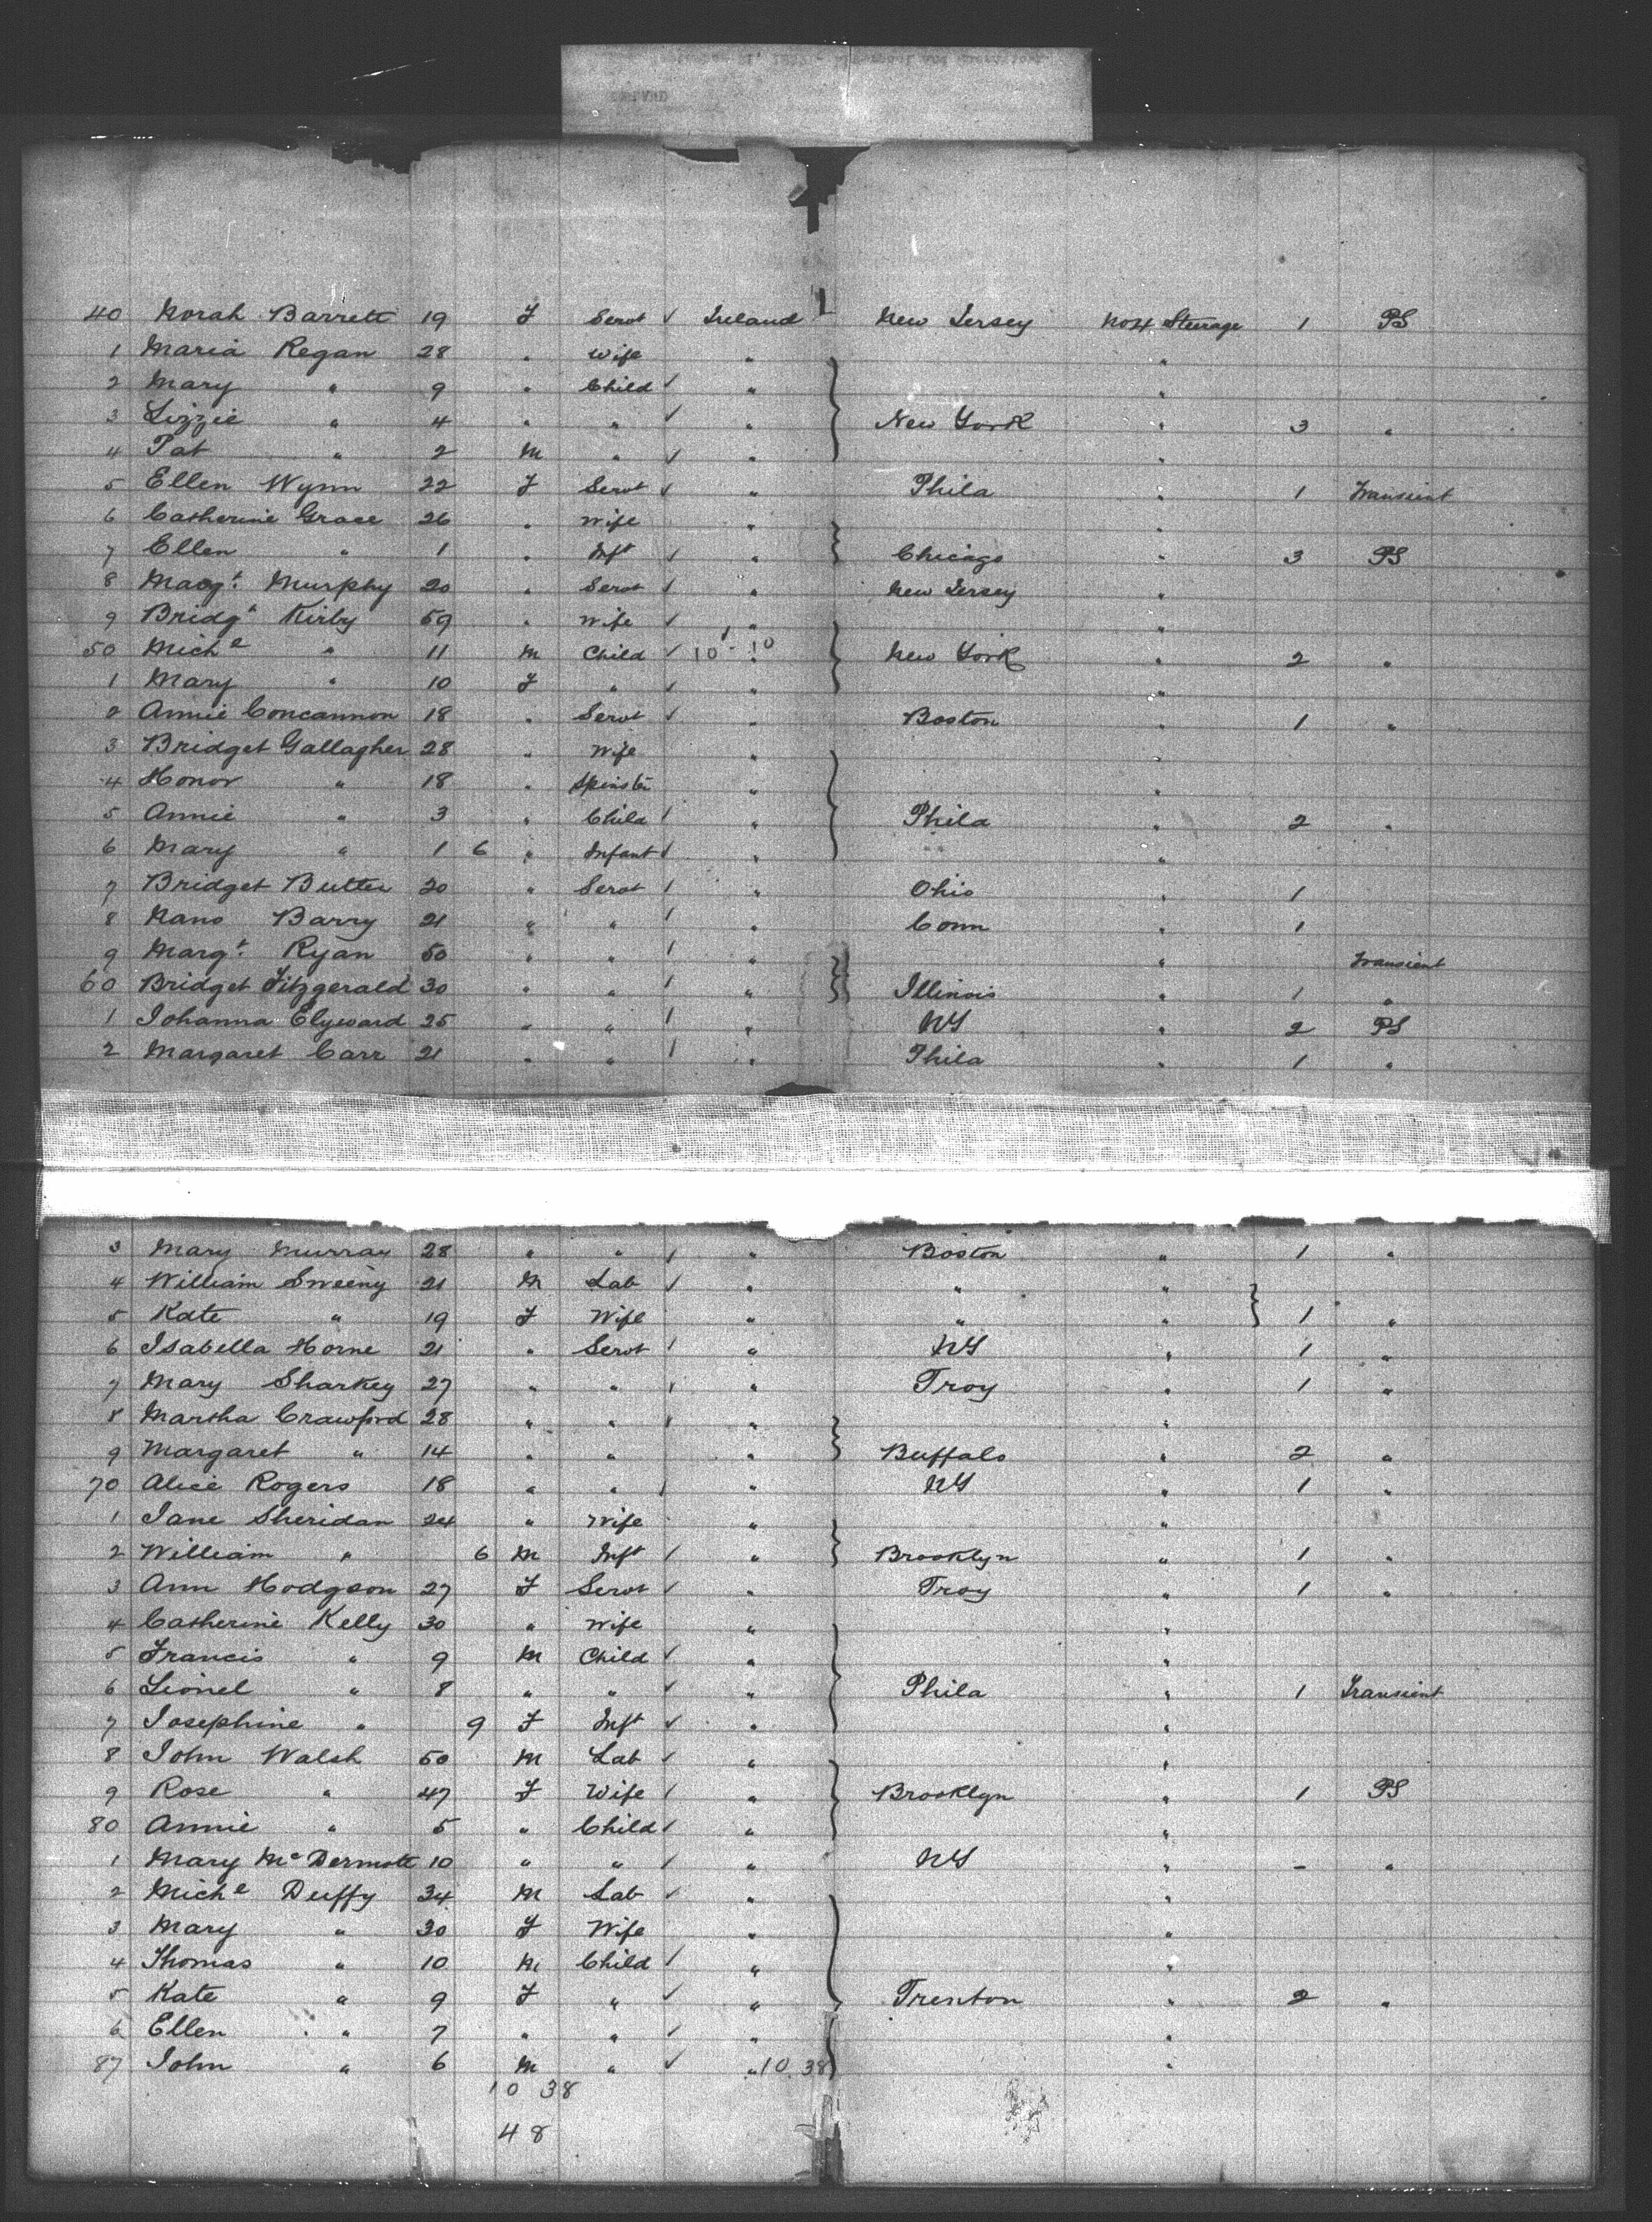 40 Norah Barrett 19 F Servt ✓ Ireland New Jersey No 4 Steerage 1 PS
1 Maria Regan 28 " Wife " "
2 Mary " 9 " Child ✓ " "
3 Lizzie " 4 " " ✓ " New York " 3 "
4 Pat " 2 M " ✓ " "
5 Ellen Wynn 22 F Servt ✓ " Phila " 1 Transient
6 Catherine Grace 26 " Wife " "
7 Ellen " 1 " Inft ✓ " Chicago " 3 PS
8 Margt. Murphy 20 " Servt ✓ " New Jersey "
9 Bridgt Kirby 59 " Wife ✓ " "
50 Miche " 11 M Child ✓ 10 - 10 " New York " 2 "
1 Mary " 10 F " ✓ " "
2 Annie Concannon 18 " Servt ✓ " Boston " 1 "
3 Bridget Gallagher 28 " Wife " "
4 Honor " 18 " Spinster " "
5 Annie " 3 " Child ✓ " Phila " 2 "
6 Mary " 1 6 " Infant ✓ " "
7 Bridget Butler 20 " Servt ✓ " Ohio " 1
8 Nano Barry 21 " " ✓ " Conn " 1
9 Margt. Ryan 50 " " ✓ " " Transient
60 Bridget Fitzgerald 30 " " ✓ " Illinois " 1 "
1 Johanna Elyward 25 " " ✓ " NY " 2 PS
2 Margaret Carr 21 " " ✓ " Phila " 1 "
3 Mary Murray 28 " " ✓ " Boston " 1 "
4 William Sweeny 21 M Lab ✓ " " "
5 Kate " 19 F Wife " " " 1 "
6 Isabella Horne 21 " Servt ✓ " NY " 1 "
7 Mary Sharkey 27 " " ✓ " Troy " 1 "
8 Martha Crawford 28 " " ✓ " "
9 Margaret " 14 " " " Buffalo " 2 "
70 Alice Rogers 18 " " ✓ " NY " 1 "
1 Jane Sheridan 24 " Wife " "
2 William " 6 M Inft ✓ " Brooklyn " 1 "
3 Ann Hodgson 27 F Servt ✓ " Troy " 1 "
4 Catherine Kelly 30 " Wife " "
5 Francis " 9 M Child ✓ " "
6 Lionel " 8 " " ✓ " Phila " 1 Transient
7 Josephine " 9 F Inft ✓ " "
8 John Walsh 50 M Lab ✓ " "
9 Rose " 47 F Wife ✓ " Brooklyn " 1 PS
80 Annie " 5 " Child ✓ " "
1 Mary McDermott 10 " " ✓ " NY " - "
2 Miche Duffy 34 M Lab ✓ " "
3 Mary " 30 F Wife " "
4 Thomas " 10 M Child ✓ " "
5 Kate " 9 F " ✓ " Trenton " 2 "
6 Ellen " 7 " " ✓ " "
87 John " 6 M " ✓ " 10 38 "
10 38
48